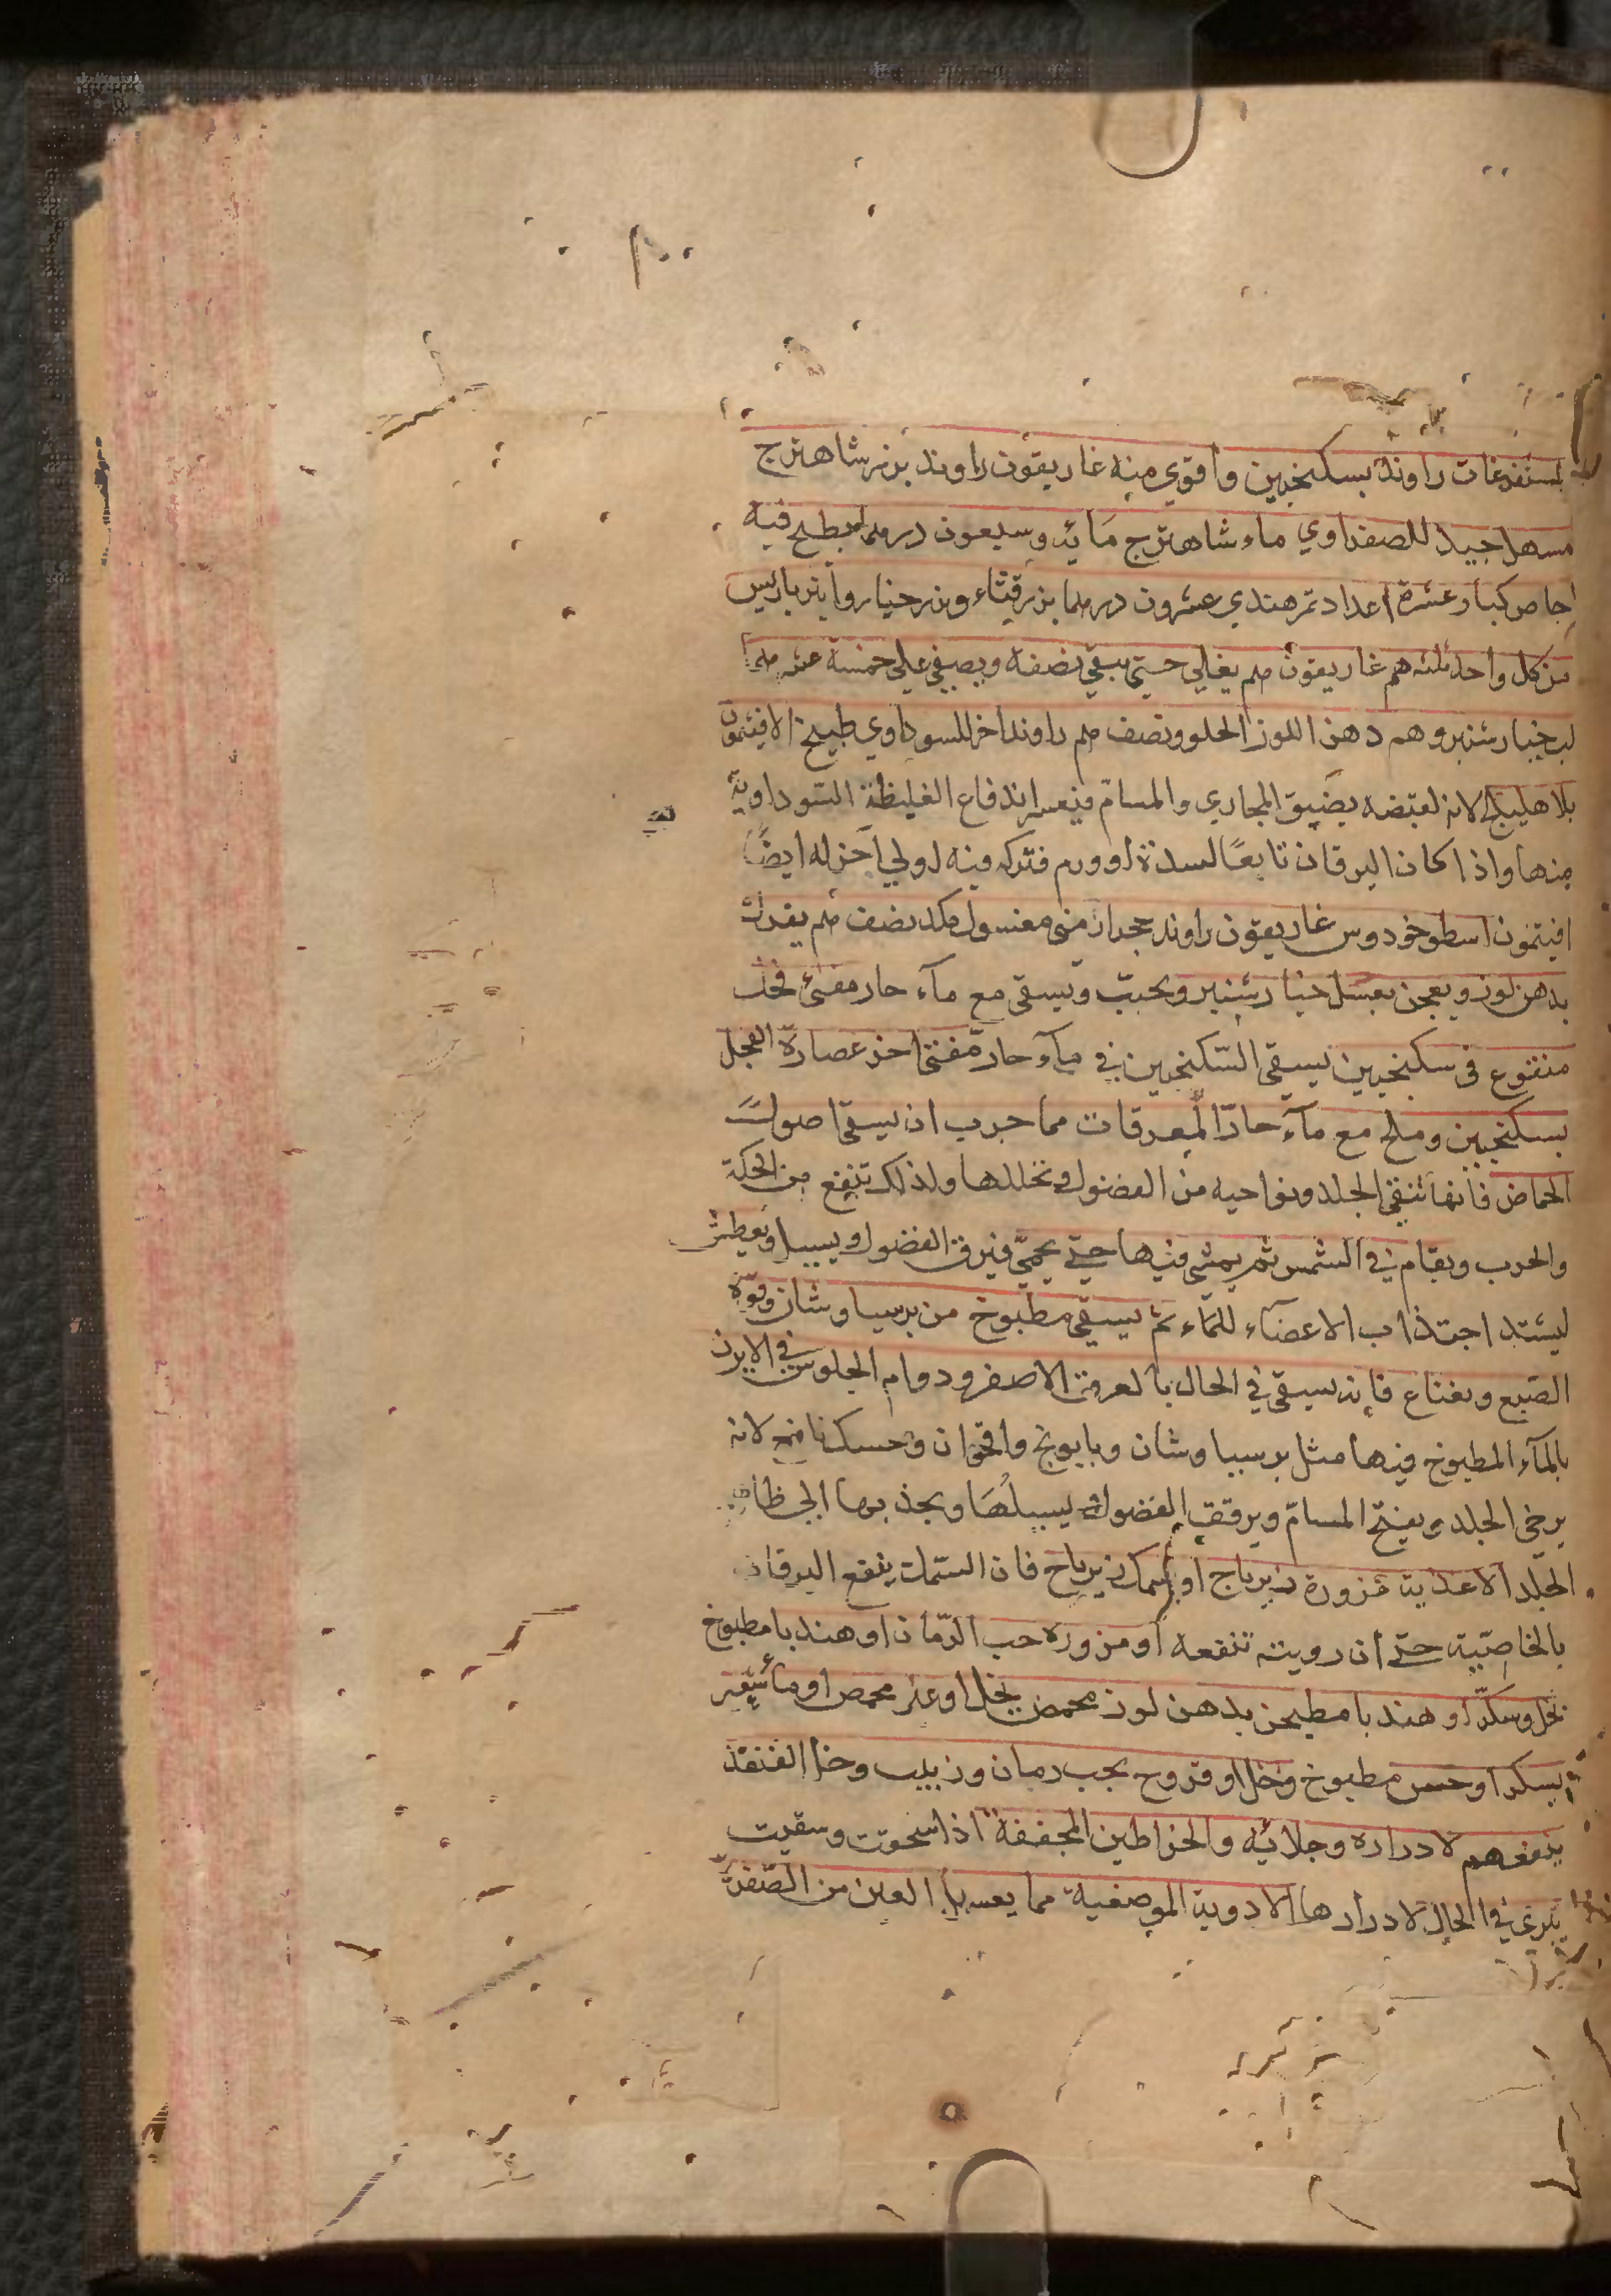 المستفرغات راوند بسكنجبين واقوي منه غاريقون راوند بزر شاهترج
مسهل جيد للصفراوي ماء شاهترج مائة وسبعون درهما يطبخ فيه
اجاص كبار عشرة اعداد تمر هندي عشرون درهما بزر قثاء وبزر خيار وانبرباريس
من كل واحد ثلثه هم غاريقون هم يغلي حتي يبقي نصفه ويصفي علي خمسة عشر
لب خيارشنبر وهم دهن اللوز الحلو ونصف هم راوند اخر للسوداوي طبيخ الافيتمون
بلا هليلج لانه لقبضه يضيق المجاري والمسام فيعسر اندفاع الغليظة السوداوية
منها واذا كان اليرقان تابعا لسدة او ورم فتركه فيه اولي اخر له ايضا
افيتمون اسطوخودوس غاريقون راوند حجر ارمني مغسول نصف هم يفرك
بدهن لوز ويعجن بعسل خيارشنبر ويحبب ويسقي مع مآء حار مقيئ فجل
منقوع في سكنجبين يسقي السكنجبين في مآء حار مقيئ اخر عصارة الفجل
بسكنجبين وملح مع مآء حار المعرقات مما جرب ان يسقي اصول
الحماض فانها تنقي الجلد ونواحيه من الفضول وتحللها ولذلك تنفع من الحكة
والجرب ويقام في الشمس ثم يمشي فيها حتي يحمي فيرق الفضول ويسيل ويعطش
ليشتد اجتذاب الاعضآء للمآء ثم يسقي مطبوخ من برسياوشان وقوة
الصبغ ونعناع فانه يسقي في الحال بالعرق الاصفر ودوام الجلوس في الابزن
بالمآء المطبوخ فيها مثل برسياوشان وبابونج واقحوان وحسك نافع لانه
يرخي الجلد ويفتح المسام ويرقق الفضول ليسيلها ويجذبها الي ظاهر
الجلد الاغذية مزورة زيرباج او سمك زيرباج فان السمك ينفع اليرقان
بالخاصية حتي ان رويته تنفعه او مزورة حب الرمان او هندبا مطبوخ
بخل وسكر او هندبا مطيحن بدهن لوز محمض بخل او غير محمض او مآ شعير
بسكر او خس مطبوخ وخل او فروج بحب رمان وزبيب وخرا القنفذ
ينفعهم لادراره وجلائه والخراطين المجففة اذا سحقت وسقيت
تبرئ في الحال لادرارها الادوية الموضعية مما يغسل العين من الصفرة